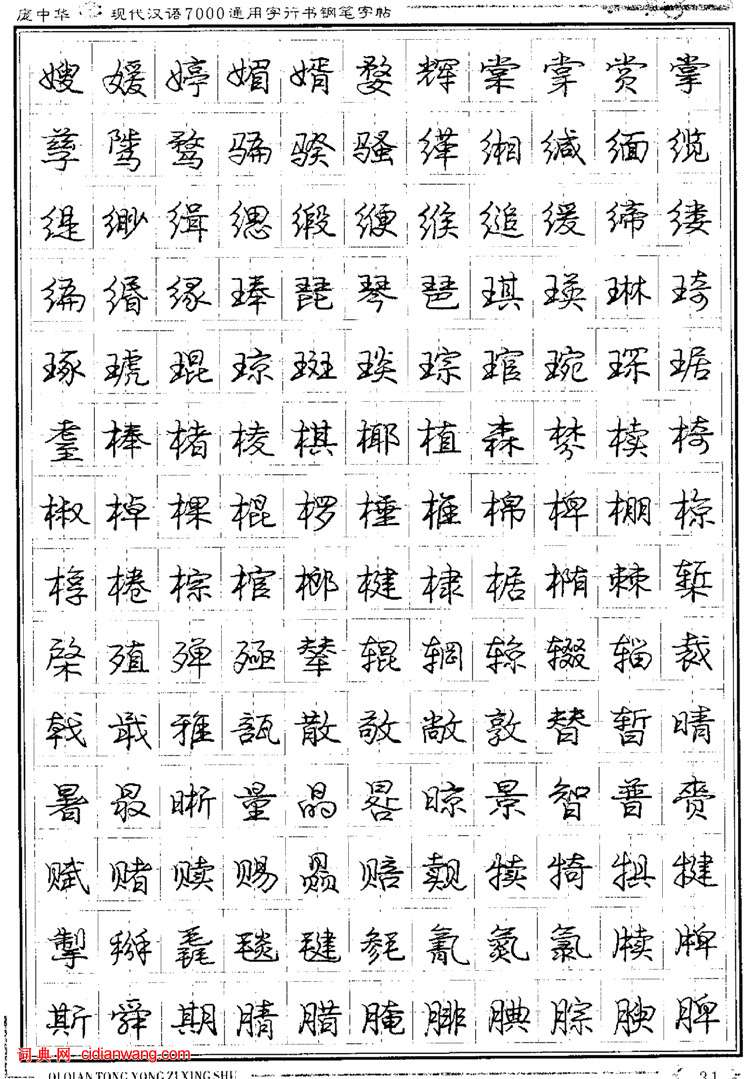 庞中华 现代汉语7000通用字行书钢笔字帖
嫂媛婷媚婿婺辉棠牚赏掌
孳骘骛骗骙骚缂缃缄缅缆
缇缈缉缌缎缏缑缒缓缔缕
编缗缘琫琵琴琶琪瑛琳琦
琢琥琨琼斑琰琮琯琬琛琚
耋棒楮棱棋椰植森棼椟椅
椒棹棵棍椤棰椎棉椑棚椋
椁棬棕棺榔楗棣椐椭棘椠
棨殖殚殛辇辊辋辌辍辎裁
戟戢雅瓿散敬敞敦替暂晴
暑最晰量晶晷晾景智普赍
赋赌赎赐赑赔觌犊犄犋犍
掣掰毳毯毽毵氰氮氯牍牌
斯舜期腈腊腌腓腆腙腴脾
词典网 cidianwang.com
QI QIAN TONG YONG ZI XING SHU
31